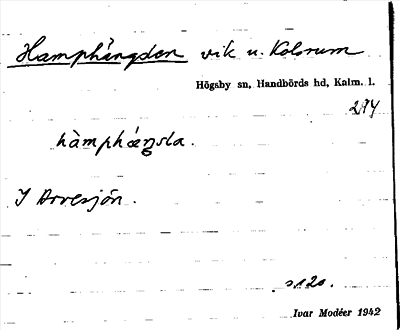 Hamphängslan vik u. Kolsrum
Högsby sn, Handbörds hd, Kalm. l.
294
hàmphæŋsla.
I Arresjön.
s. 120.
Ivar Modéer 1942